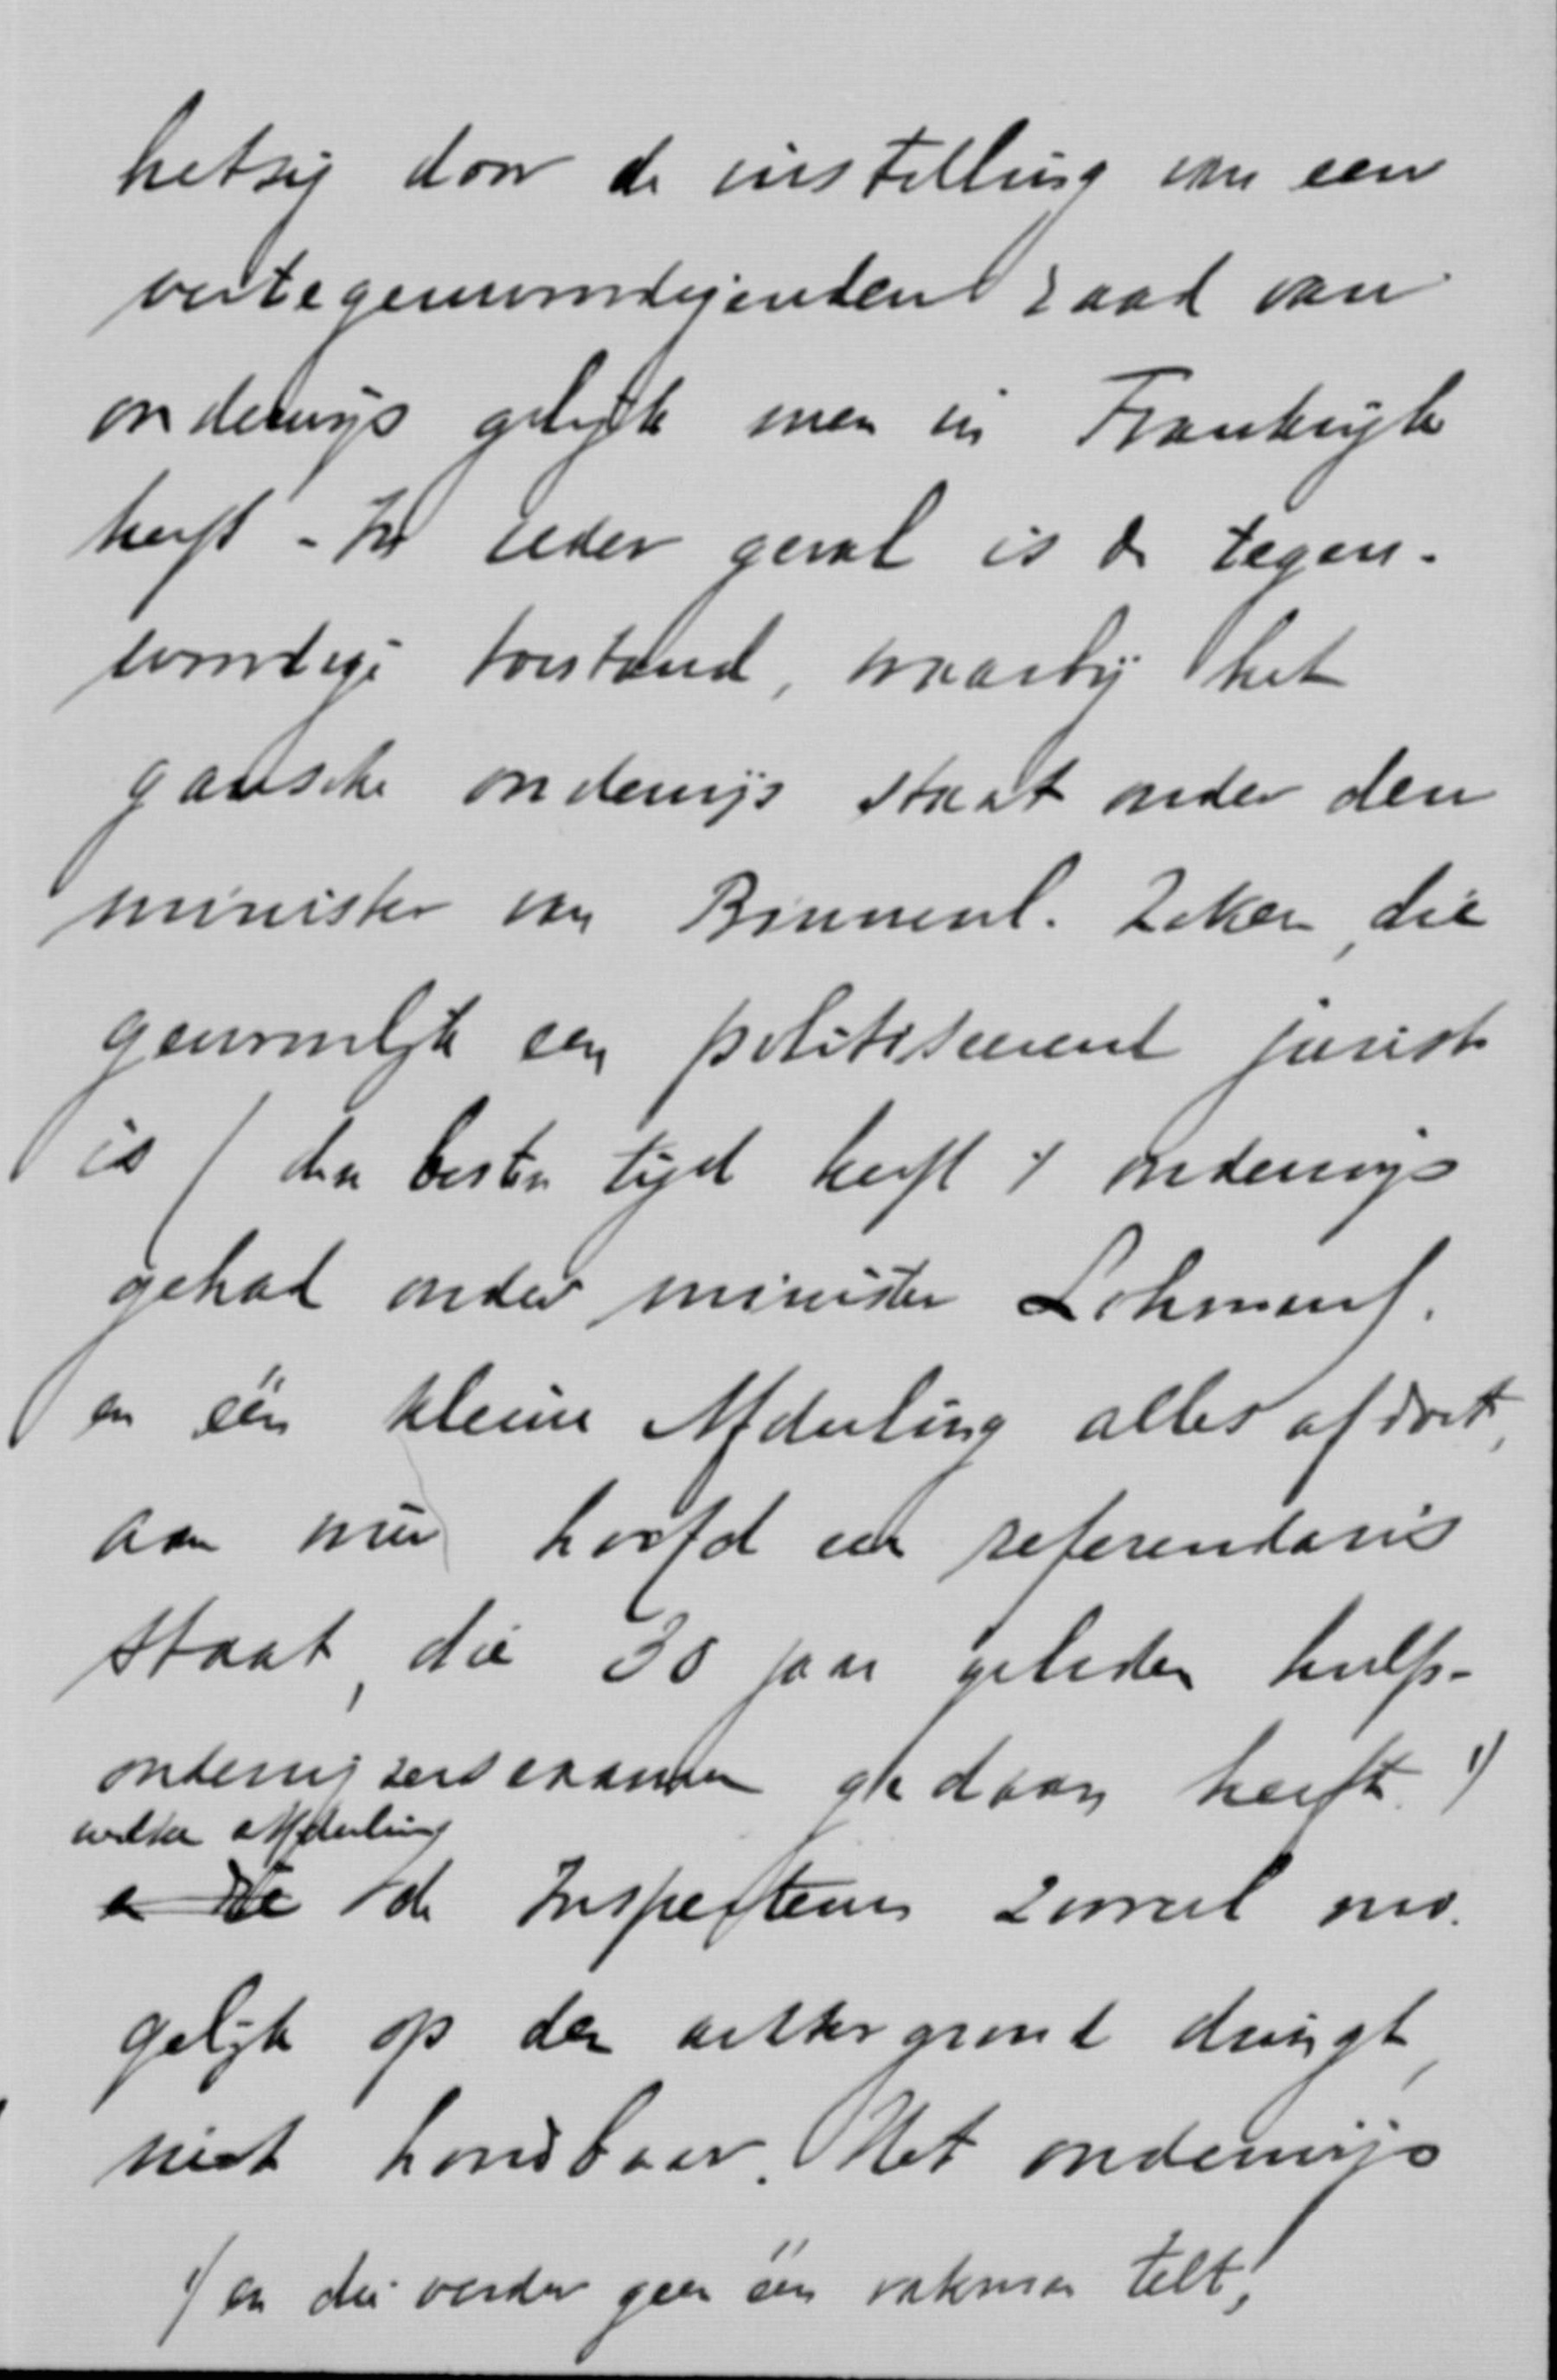 hetzij door de instelling van een
vertegenwoordigenden raad van
onderwijs gelijk men in Frankrijk
heeft - In ieder geval is de tegen-
woordige toestand, waarbij het
gansche onderwijs staat onder den
minister van Binnenl. Zaken, die
gewoonlijk een politiseerend jurist
is / den besten tijd heeft 't onderwijs
gehad onder minister Lohman /.
en één kleine Afdeeling alles afdoet,
aan wier hoofd een referendaris
staat, die 30 jaar geleden hulp-
onderwijzersexamen gedaan heeft. 1)
welke Afdeeling
en die de Inspecteurs zooveel mo-
gelijk op den achtergrond dringt,
niet houdbaar. Het onderwijs
1) en die verder geen één vakman telt,